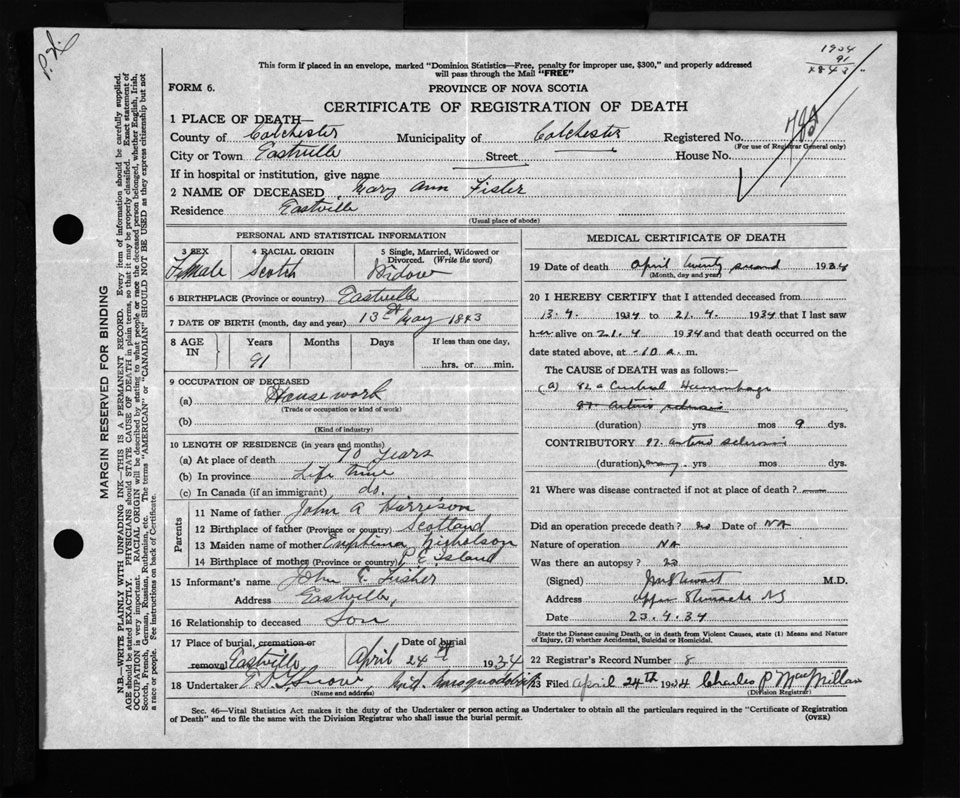 P.H.
This form if placed in an envelope, marked "Dominion Statistics—Free, penalty for improper use, $300," and properly addressed
will pass through the Mail "FREE"
1934
91
1843
FORM 6.
PROVINCE OF NOVA SCOTIA
CERTIFICATE OF REGISTRATION OF DEATH
1 PLACE OF DEATH—
County of Colchester Municipality of Colchester Registered No.
(For use of Registrar General only)
City or Town Eastville Street House No.
If in hospital or institution, give name
2 NAME OF DECEASED Mary Ann Fisher
Residence Eastville
(Usual place of abode)
PERSONAL AND STATISTICAL INFORMATION
3 SEX 4 RACIAL ORIGIN 5 Single, Married, Widowed or
Divorced. (Write the word)
Female Scotch Widow
6 BIRTHPLACE (Province or country) Eastville
7 DATE OF BIRTH (month, day and year) 13 May 1843
8 AGE IN Years Months Days If less than one day,
91 hrs. or min.
9 OCCUPATION OF DECEASED
(a) Housework
(Trade or occupation or kind of work)
(b)
(Kind of industry)
10 LENGTH OF RESIDENCE (in years and months)
(a) At place of death 70 years
(b) In province Life time
(c) In Canada (if an immigrant) do.
Parents
11 Name of father John A Harrison
12 Birthplace of father (Province or country) Scotland
13 Maiden name of mother Nicholson
14 Birthplace of mother (Province or country) P E Island
15 Informant's name John E. Fisher
Address Eastville,
16 Relationship to deceased Son
17 Place of burial, cremation or Date of burial
removal Eastville April 24 1934
18 Undertaker
(Name and address)
MEDICAL CERTIFICATE OF DEATH
19 Date of death April twenty second 1934
(Month, day and year)
20 I HEREBY CERTIFY that I attended deceased from
13.4. 1934 to 21.4. 1934 that I last saw
her alive on 21.4 1934 and that death occurred on the
date stated above, at 10 a. m.
The CAUSE of DEATH was as follows:—
(a) 82 a Cerebral Hemorrhage
(duration) yrs mos 9 dys.
CONTRIBUTORY 97. arterio sclerosis
(duration) many yrs mos dys.
21 Where was disease contracted if not at place of death?
Did an operation precede death? no Date of NA
Nature of operation NA
Was there an autopsy?
(Signed) Stewart M.D.
Address Upper Stewiacke NS
Date 23.4.34
State the Disease causing Death, or in death from Violent Causes, state (1) Means and Nature
of Injury, (2) whether Accidental, Suicidal or Homicidal.
22 Registrar's Record Number 8
23 Filed April 24th 1934 Charles P MacMillan
(Division Registrar)
Sec. 46—Vital Statistics Act makes it the duty of the Undertaker or person acting as Undertaker to obtain all the particulars required in the "Certificate of Registration
of Death" and to file the same with the Division Registrar who shall issue the burial permit.
(OVER)
MARGIN RESERVED FOR BINDING
N.B.—WRITE PLAINLY WITH UNFADING INK—THIS IS A PERMANENT RECORD. Every item of information should be carefully supplied.
AGE should be stated EXACTLY. PHYSICIANS should STATE CAUSE OF DEATH in plain terms, so that it may be properly classified. Exact statement of
OCCUPATION is very important. RACIAL ORIGIN will be described by stating to what people or race the deceased person belonged, whether English, Irish,
Scotch, French, German, Russian, Ruthenian, etc. The terms "AMERICAN" or "CANADIAN" SHOULD NOT BE USED as they express citizenship but not
a race or people. See instructions on back of Certificate.